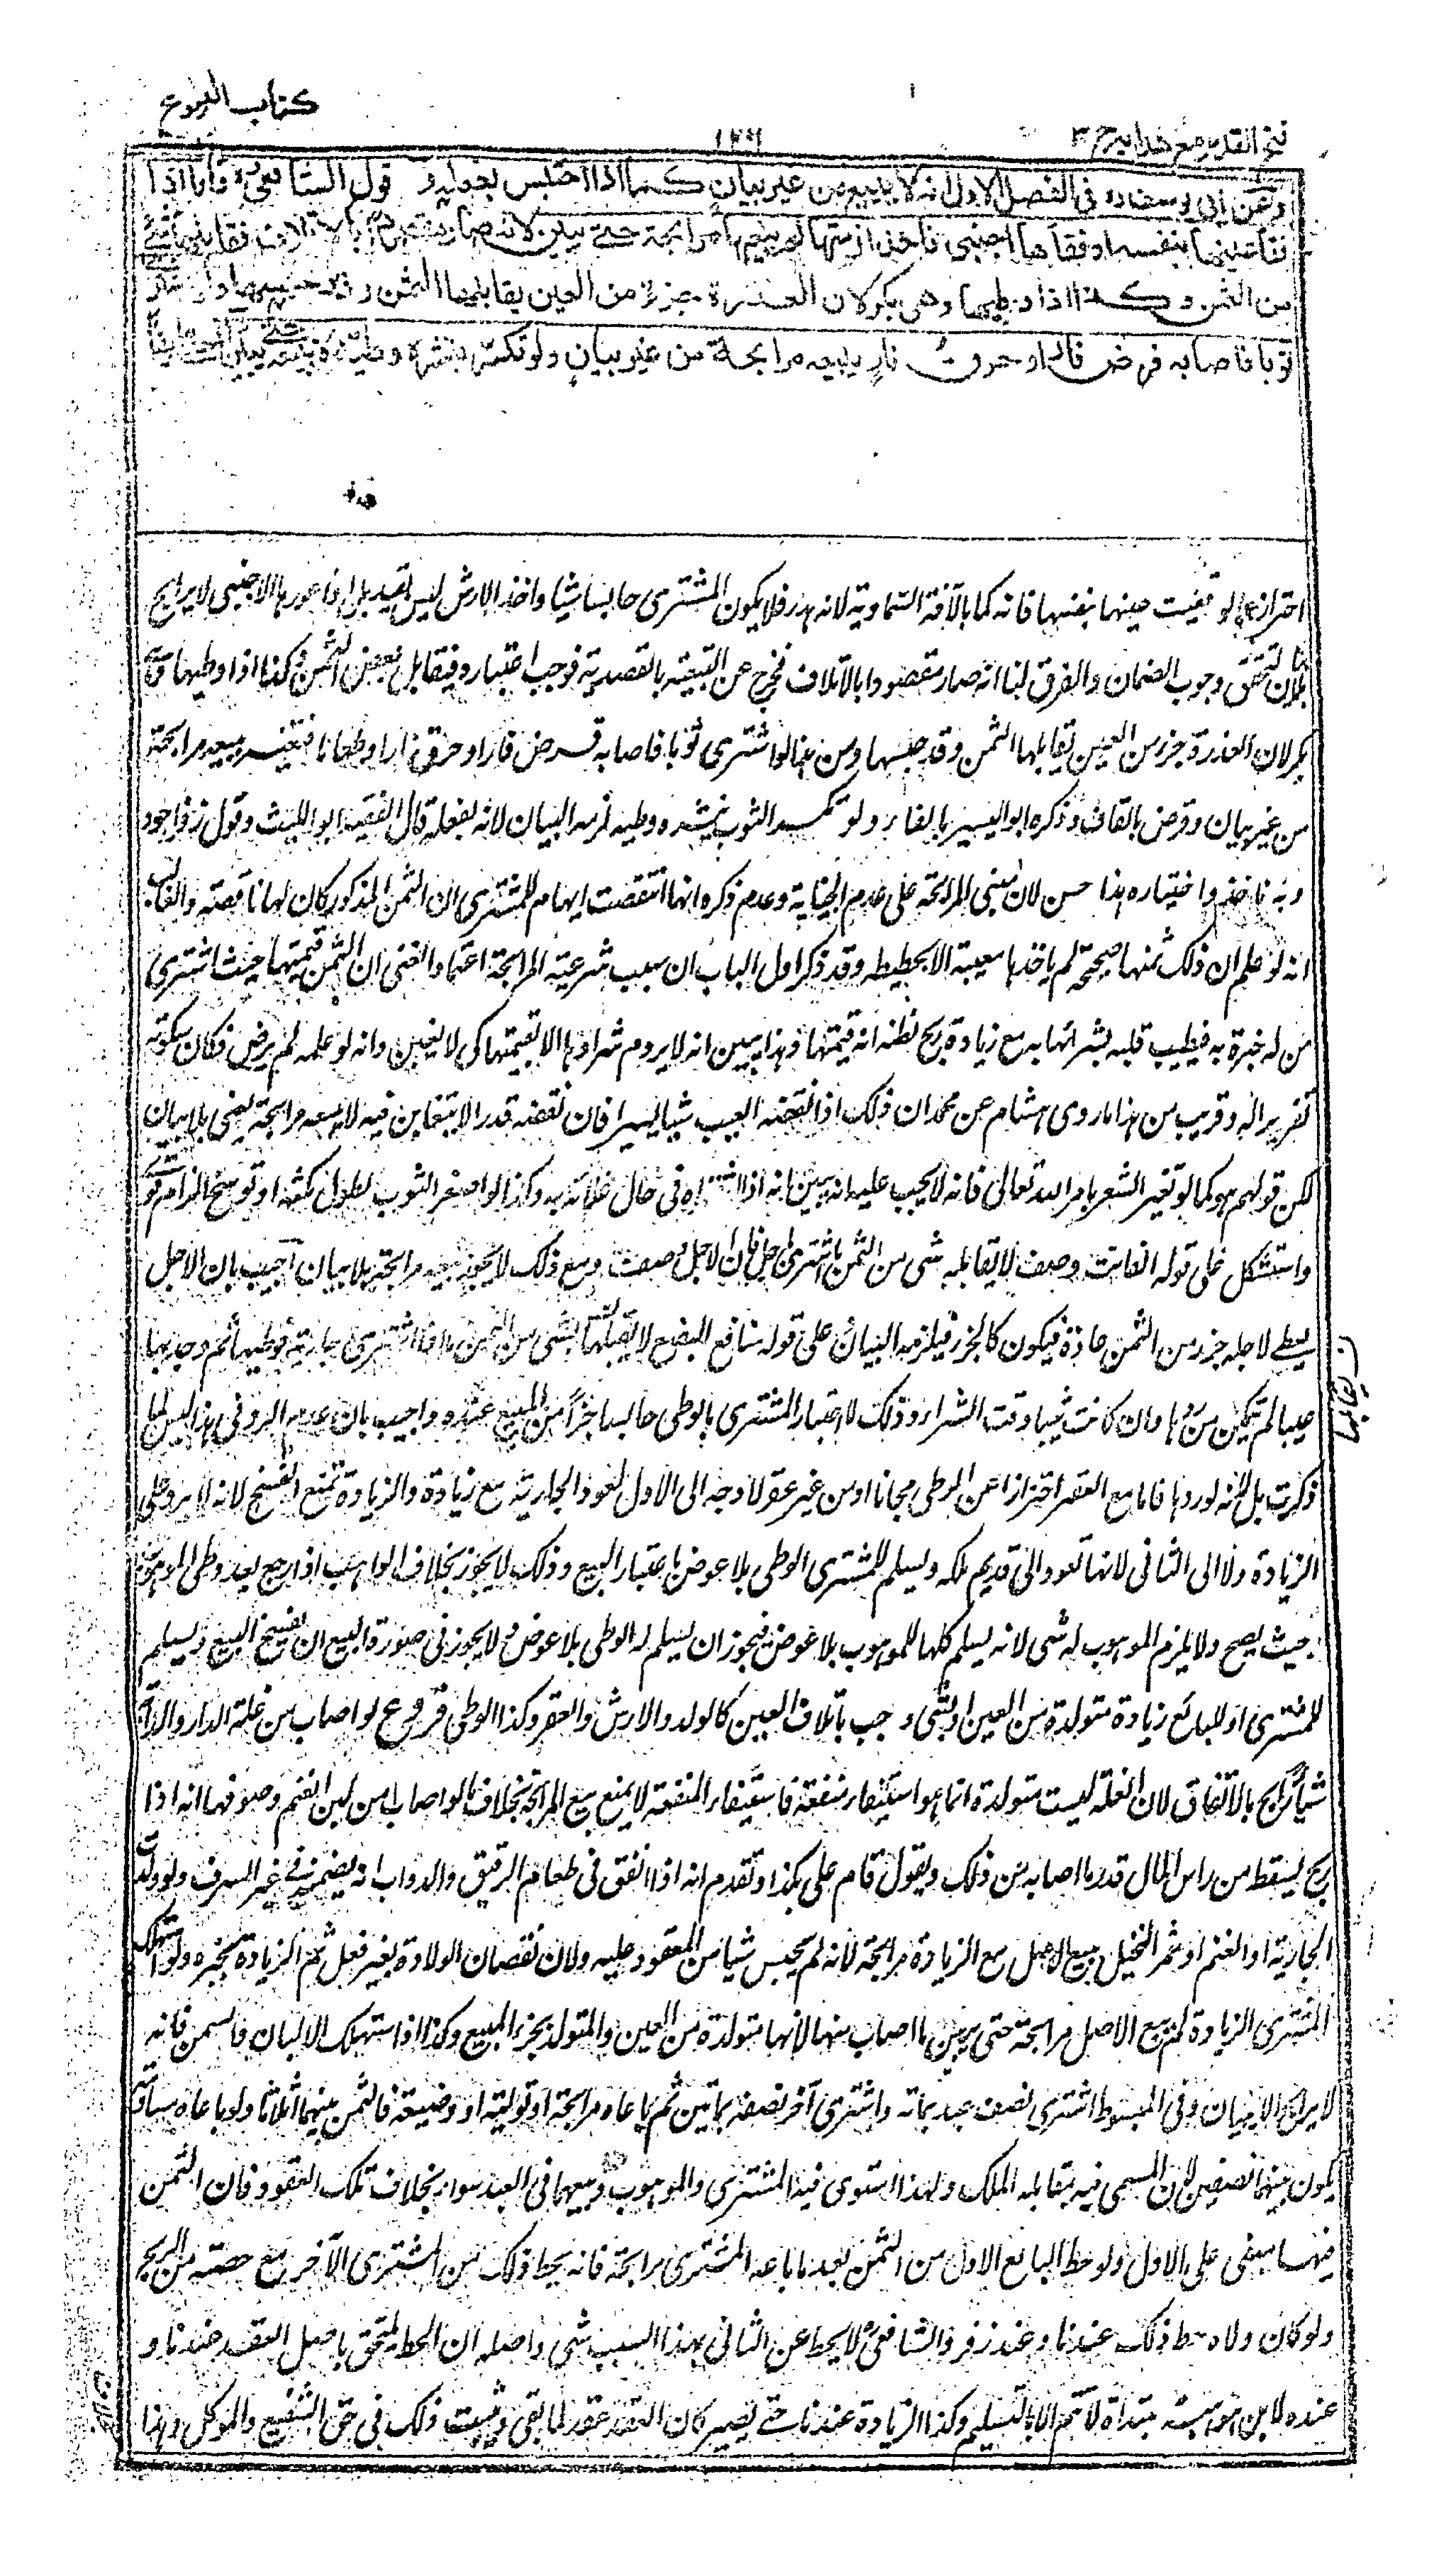 كتاب البيوع
فتح القدير مع هدايه ج ٣
وعن ابي يوسف في الفصل الاول انه لا يبيع من غير بيان كما اذا احتبس بفعله وقول الشافعي فاما اذا
فقأ عينها بنفسه او فقأها اجنبي فاخذ ارشها لم يبعها مرابحة حتى يبين لانه صار مقصودا بالاتلاف فيقابلها شئ
من الثمن وكذا اذا وطيها وهي بكر لان العذرة جزء من العين يقابلها الثمن وقد حبسها ولو اشترى
ثوبا فاصابه قرض فار او حرق نار يبيعه مرابحة من غير بيان ولو تكسر بنشره وطيه لا يبيعه حتى يبين
احترازا عما لو فقئت عينها بنفسها فانه كما بالآفة السماوية لانه هدر فلا يكون المشترى حابسا شيا واخذ الارش ليس بقيد بل اذا عورها الاجنبى لا يرابح
بلا بيان لتحقق وجوب الضمان والفرق لنا انه صار مقصودا بالاتلاف فخرج عن التبعية بالقصدية فوجب اعتباره فيقابل ببعض الثمن وكذا اذا وطيها وهى
بكر لان العذرة جزء من العين يقابلها الثمن وقد حبسها ومن هنا لو اشترى ثوبا فاصابه قرض فار او حرق نار او طعانا فتغير يبيعه مرابحة
من غير بيان وقرض بالقاف وذكره ابو اليسر بالفاء ولو تكسر الثوب بنشره وطيه لزمه البيان لانه بفعله قال الفقيه ابو الليث وقول زفر اجود
وبه ناخذ واختياره هذا حسن لان مبنى المرابحة على عدم الخيانة وعدم ذكره انها انتقصت ايهام للمشترى ان الثمن المذكور كان لها ناقصة والغالب
انه لو علم ان ذلك ثمنها صحيحة لم ياخذها معيبة الا بحطيطه وقد ذكر اول الباب ان سبب شرعية المرابحة اعتماد الغبى ان الثمن قيمتها حيث اشترى
من له خبرة به فيطيب قلبه بشرائها به مع زيادة ربح لظنه انه قيمتها وهذا يبين انه لا يروم شراءها الا بقيمتها كى لا يغبن وانه لو علمه لم يرض فكان سكوته
تغريرا له وقريب من هذا ما روى هشام عن محمد ان ذلك اذا نقصه العيب شيا يسيرا فان نقصه قدر لا يتغابن فيه لا يبيعه مرابحة يعنى بلا بيان
لكن قولهم هو كما لو تغير السعر بامر الله تعالى فانه لا يجب عليه ان يبين انه اذا اشتراه فى حال غلائه به وكذا لو اصفر الثوب لطول مكثه او توسخ
واستشكل على قوله الفائت وصف لا يقابله شى من الثمن ما اشترى باجل فان الاجل وصف ومع ذلك لا يجوز بيعه مرابحة بلا بيان اجيب بان الاجل
يعطى لاجله جزء من الثمن عادة فيكون كالجزء فيلزمه البيان وعلى قوله منافع البضع لا يقابلها شى من الثمن ما اذا اشترى جارية فوطيها ثم وجد بها
عيبا لم يتمكن من ردها وان كانت ثيبا وقت الشراء وذلك لاعتبار المشترى بالوطى حابسا جزءا من المبيع عنده واجيب بان عدم الرد فى هذا ليس لما
ذكرت بل لانه لو ردها فاما مع العقر احترازا عن الوطى مجانا او من غير عقر لا وجه الى الاول لعود الجارية مع زيادة والزيادة تمنع الفسخ لانه لا يرد على
الزيادة ولا الى الثانى لانها تعود الى قديم ملكه ويسلم للمشترى الوطى بلا عوض باعتبار البيع وذلك لا يجوز بخلاف الواهب اذا رجع بعد وطى الموهوب
حيث يصح ولا يلزم الموهوب له شى لانه يسلم كلها للموهوب بلا عوض فيجوز ان يسلم له الوطى بلا عوض ولا يجوز فى صورة البيع ان يفسخ البيع ويسلم
للمشترى او للبائع زيادة متولدة من العين او شى وجب باتلاف العين كالولد والارش والعقر وكذا الوطى فروع لو اصاب من غلة الدار والدابة
شيأ رابح بالاتفاق لان الغلة ليست متولدة انما هو استيفاء منفعة فاستيفاء المنفعة لا يمنع بيع المرابحة بخلاف ما لو اصاب من لبن الغنم وصوفها انه اذا
ربح يسقط من راس المال قدر ما اصابه من ذلك ويقول قام على بكذا وتقدم انه اذا انفق فى طعام الرقيق والدواب انه يضم فى غير السرف ولو ولدت
الجارية او الغنم او ثمر النخيل يبيع الاصل مع الزيادة مرابحة لانه لم يحبس شيا من المعقود عليه ولان نقصان الولادة بغير فعل ثم الزيادة تجبره ولو استهلك
المشترى الزيادة لم يبع الاصل مرابحة حتى يبين ما اصاب منها لانها متولدة من العين والمتولد كجزء المبيع وكذا اذا استهلك الالبان والسمن فانه
لا يرابح الا ببيان وفى المبسوط اشترى نصف عبد بمائة واشترى آخر نصفه بمأتين ثم باعاه مرابحة او تولية او وضيعة فالثمن بينهما اثلاثا ولو باعاه مساومة
يكون بينهما نصفين لان المسمى فيه بمقابلة الملك ولهذا استوى فيه المشترى والموهوب وبيعهما فى العبد سواء بخلاف تلك العقود فان الثمن
فيها مبنى على الاول ولو حط البائع الاول من الثمن بعد ما باعه المشترى مرابحة فانه يحط ذلك من المشترى الآخر مع حصته من الربح
ولو كان ولاه حط ذلك عندنا وعند زفر والشافعى لا يحط عن الثانى بهذا السبب شى واصله ان الحط يلتحق باصل العقد عندنا و
عنده لا بل هو هبة مبتداة لا تتم الا بالتسليم وكذا الزيادة عندنا حتى يصير كان العقد عقد لما بقى ويثبت ذلك فى حق الشفيع والموكل وهذا